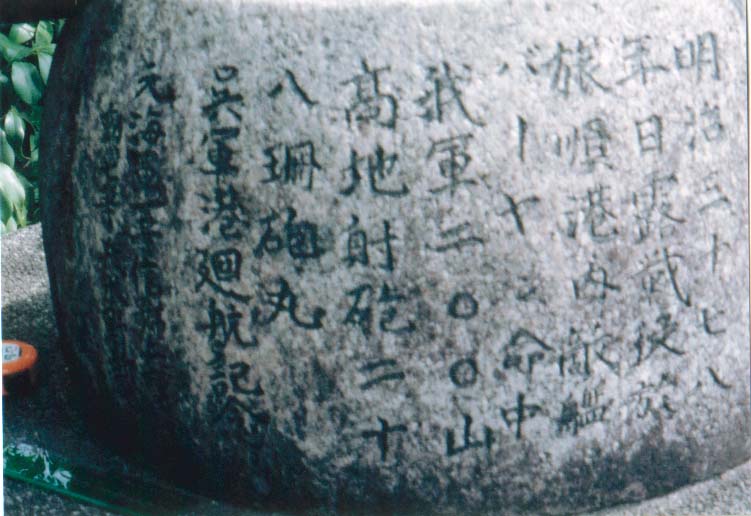 明治三十七八
年日露戦役於
旅順港内敵艦
バーヤン命中
我軍二〇〇山
高地射砲二十
八珊砲丸
呉軍港廻航記念
元海軍